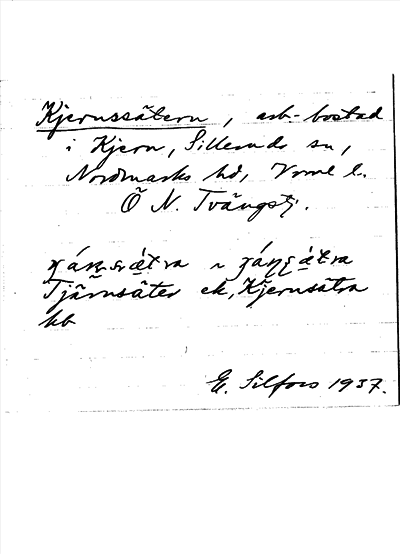 Kjerussätern, arb-bostad
i Kjern, Silleruds sn,
Nordmarks hd, Vrml l.
Ö N. Tvängstj.
Tjärnsäter ek, Kjernsätra
kb
E. Silfors 1937.